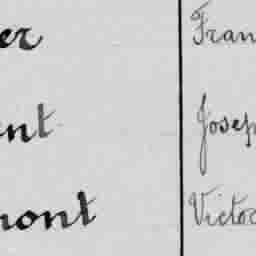 er Fran
ent Josep
mont Victo